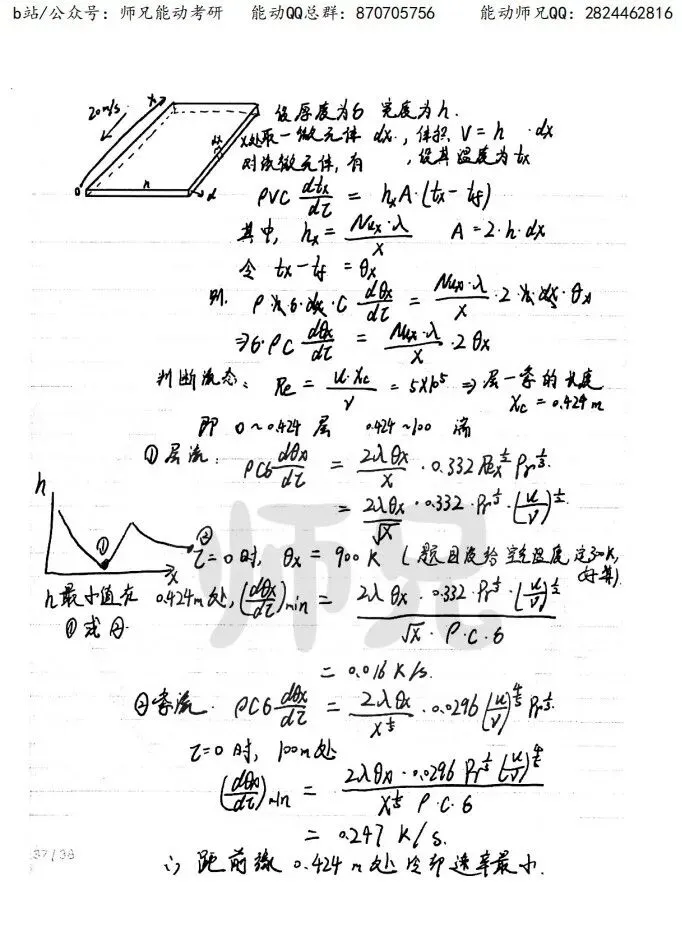 b站/公众号：师兄能动考研 能动QQ总群：870705756 能动师兄QQ：2824462816
设厚度为6 宽度为h.
20m/s
x处取一微元体 dx, 体积 V=h·dx
对该微元体, 有 , 设其温度为tx
ρVC dtx/dτ = hxA·(tx-tf)
其中, hx = Nux·λ/x A=2·h·dx
令 tx-tf = θx
则. ρ·h·6·dx·C dθx/dτ = Nux·λ/x·2·h·dx·θx
⇒6·ρC dθx/dτ = Nux·λ/x·2θx
判断流态: Re = u·xc/ν = 5×10⁵ ⇒ 层一紊的长度
xc = 0.424m
即 0~0.424 层 0.424~100 湍
①层流: ρC6 dθx/dτ = 2λθx/x · 0.332 Rex^½ Pr^⅓.
= 2λθx/√x · 0.332·Pr^⅓·(u/ν)^½.
h
①
②
x
τ=0时, θx = 900K (题目没给空气温度, 定30K, 好算)
h最小值在 0.424m处, (dθx/dτ)min = 2λθx·0.332·Pr^⅓·(u/ν)^½ / √x·ρ·C·6
①或②
= 0.016 K/s.
②紊流. ρC6 dθx/dτ = 2λθx/x^⅕ · 0.0296 (u/ν)^⅘ Pr^⅓.
τ=0时, 100m处
(dθx/dτ)min = 2λθx·0.0296 Pr^⅓ (u/ν)^⅘ / x^⅕ ρ·C·6
= 0.247 K/s.
37/38
∴ 距前缘 0.424m处冷却速率最小.
师兄